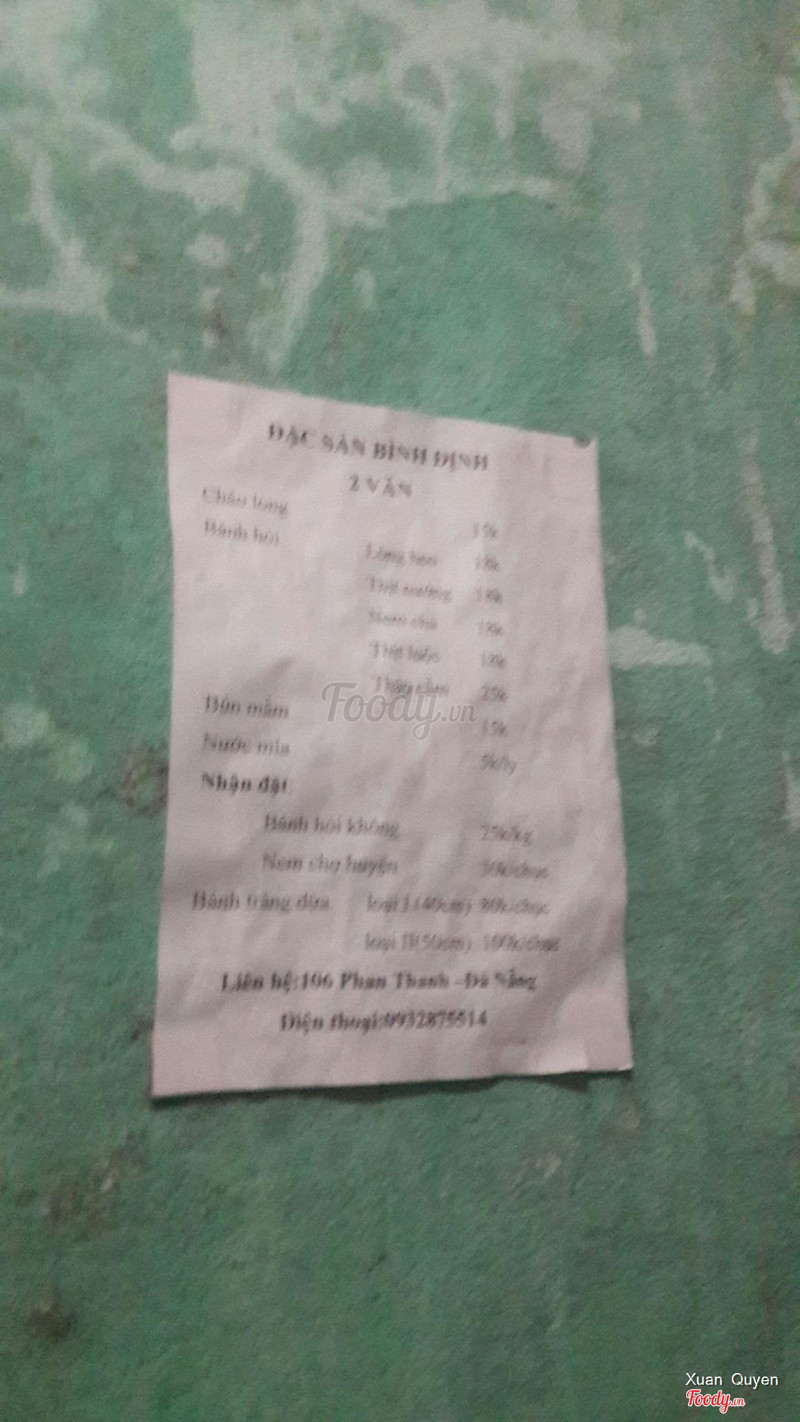 ĐẶC SẢN BÌNH ĐỊNH
2 VĂN
Cháo lòng 15k
Bánh hỏi Lòng heo 18k
Thịt nướng 18k
Nem chả 18k
Thịt luộc 18k
Thập cẩm 25k
Bún mắm 15k
Nước mía 5k/ly
Nhận đặt
Bánh hỏi không 25k/kg
Nem chợ huyện /chục
Bánh tráng dừa loại I (40cm) 80k/chục
loại II(50cm) 100k/chục
Liên hệ:106 Phan Thanh -Đà Nẵng
Điện thoại:0932875514
Foody.vn
Xuan Quyen
Foody.vn